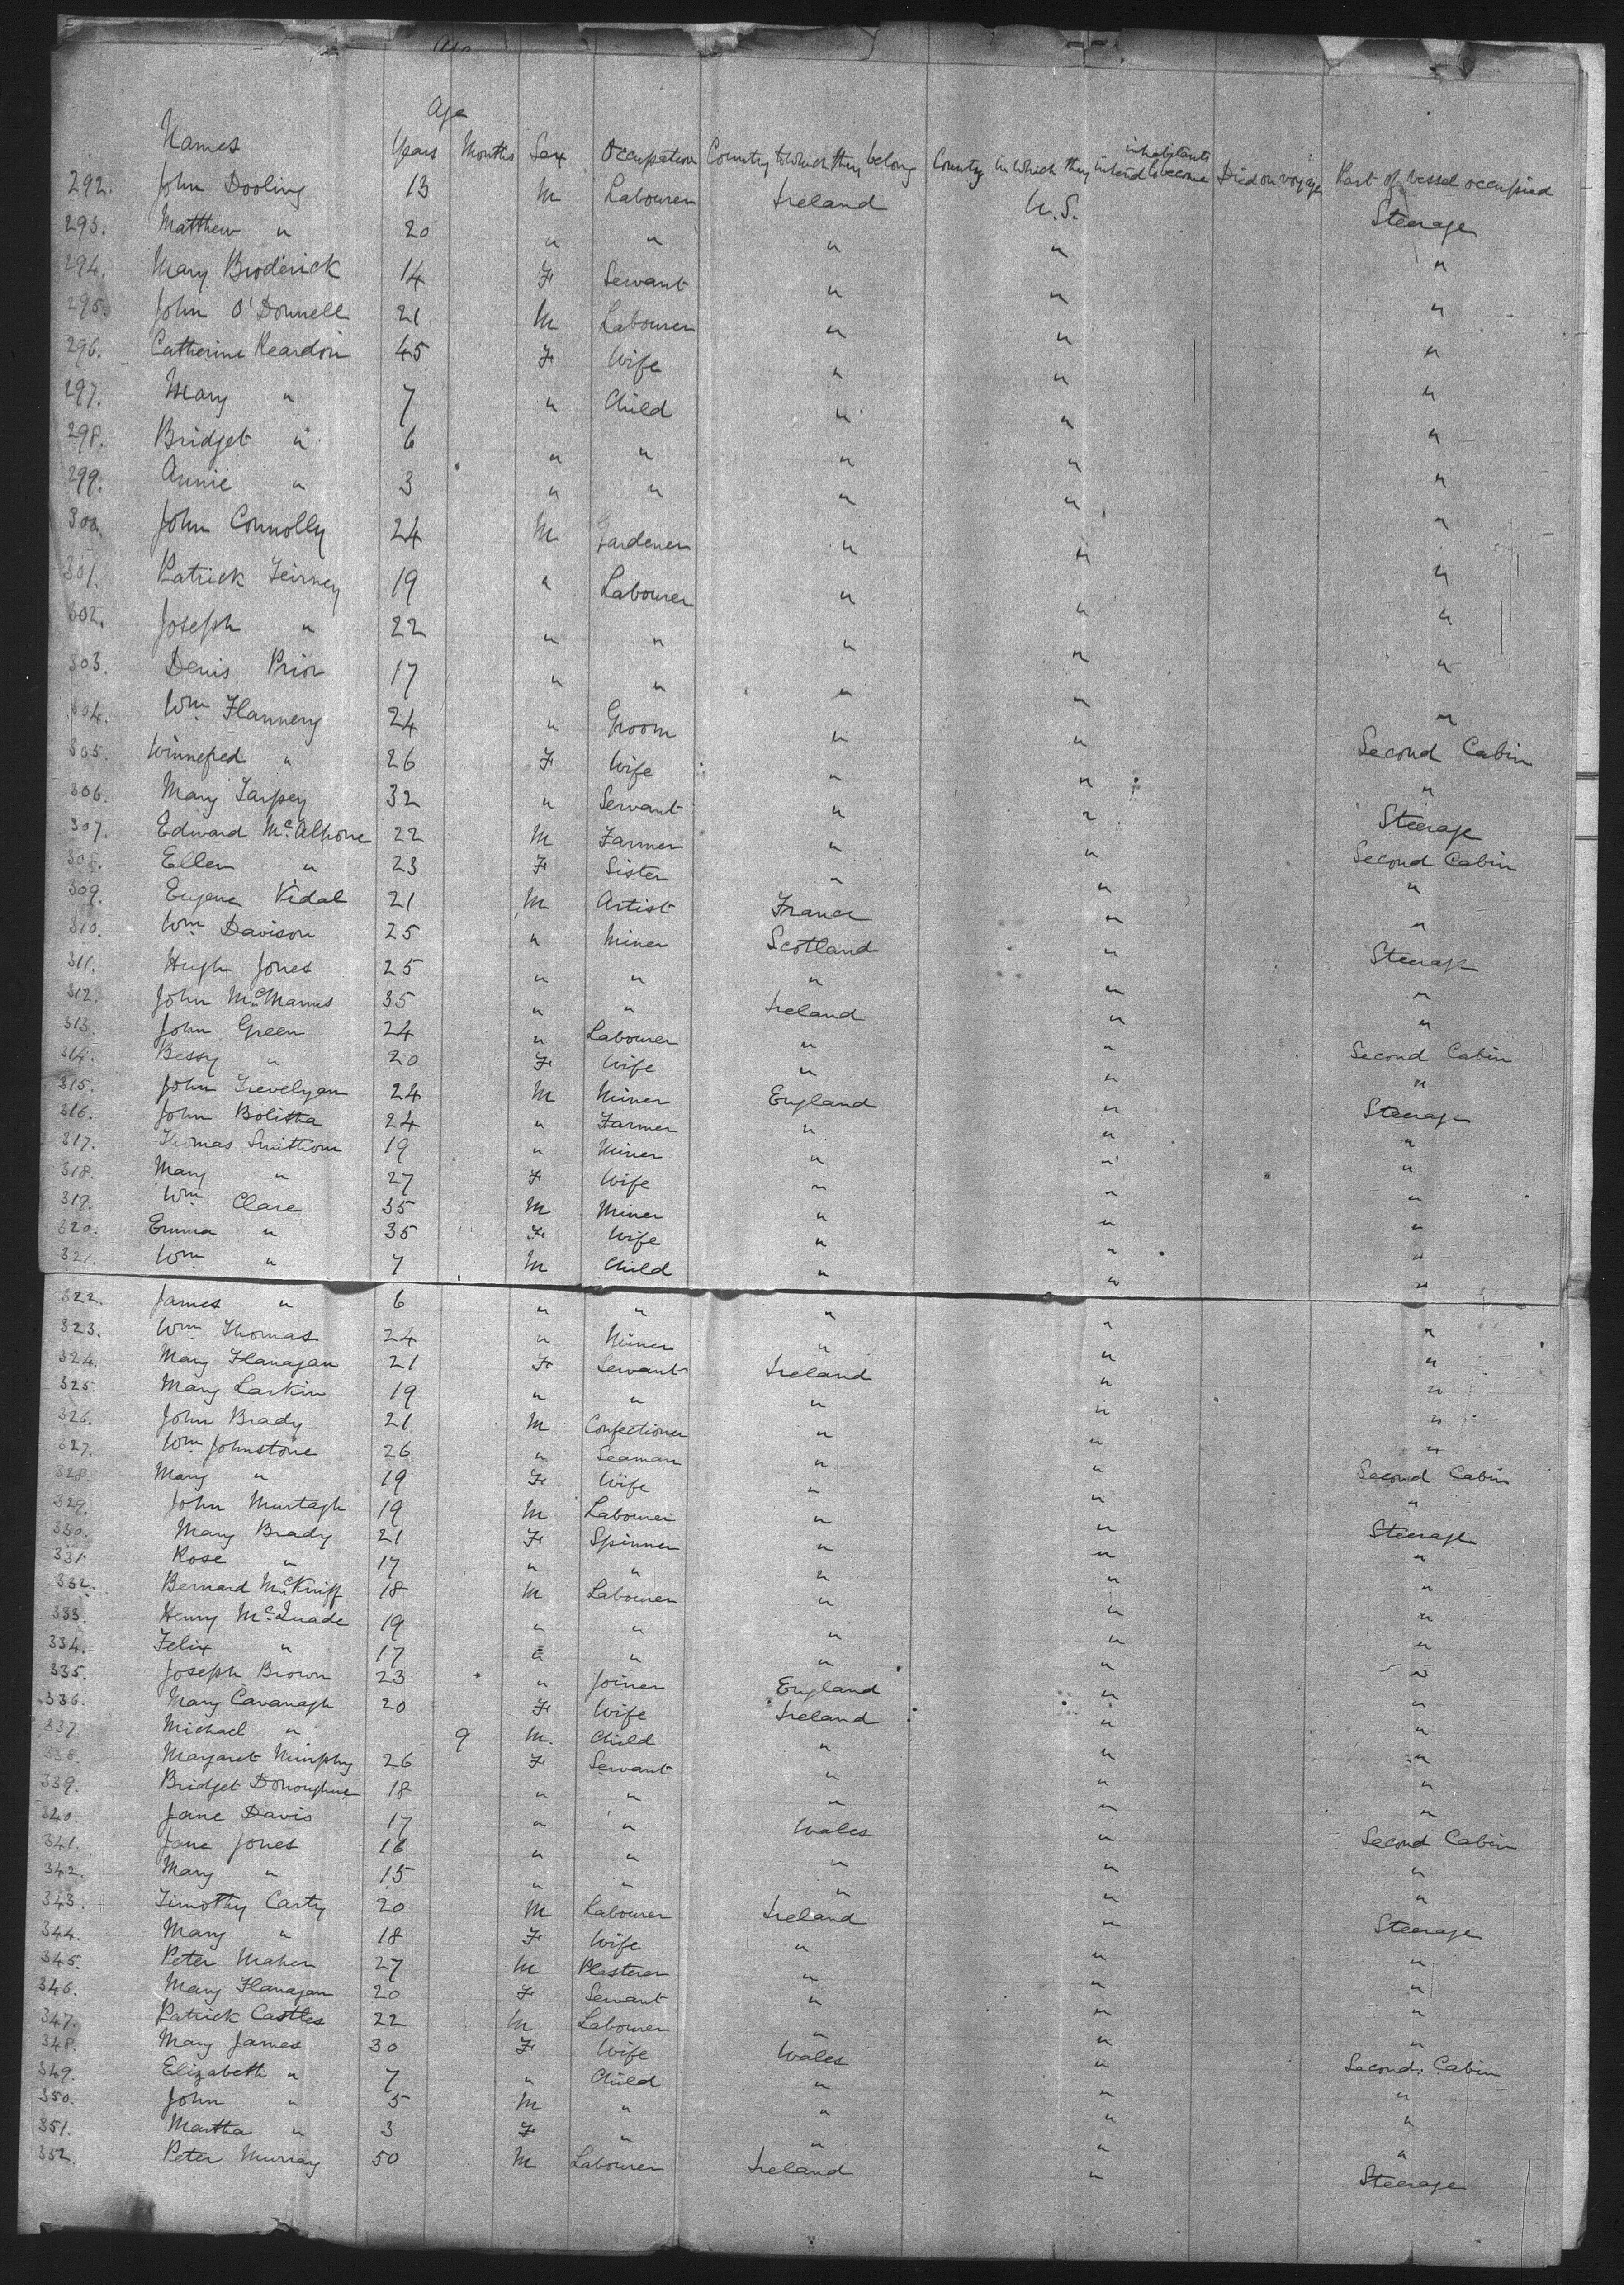 Age
Names Years Months Sex Occupation Country to which they belong Country in which they intend to become inhabitants Died on voyage Part of Vessel occupied
292. John Dooling 13 M Labourer Ireland U.S. Steerage
293. Matthew " 20 " " " " "
294. Mary Broderick 14 F Servant " " "
295. John O'Donnell 21 M Labourer " " "
296. Catherine Reardon 45 F Wife " " "
297. Mary " 7 " Child " " "
298. Bridget " 6 " " " " "
299. Annie " 3 " " " " "
300. John Connolly 24 M Gardener " " "
301. Patrick Teirney 19 " Labourer " " "
302. Joseph " 22 " " " " "
303. Denis Prior 17 " " " " "
304. Wm Flannery 24 " Groom " " Second Cabin
305. Winnefred " 26 F Wife " " "
306. Mary Tarpey 32 " Servant " " Steerage
307. Edward McAlpine 22 M Farmer " " Second Cabin
308. Ellen " 23 F Sister " " "
309. Eugene Vidal 21 M Artist France " "
310. Wm Davison 25 " Miner Scotland " Steerage
311. Hugh Jones 25 " " " " "
312. John McManus 35 " " Ireland " "
313. John Green 24 " Labourer " " Second Cabin
314. Bessy " 20 F Wife " " "
315. John Trevelyan 24 M Miner England " Steerage
316. John Bolitha 24 " Farmer " " "
317. Thomas Smithom 19 " Miner " " "
318. Mary " 27 F Wife " " "
319. Wm Clare 35 M Miner " " "
320. Emma " 35 F Wife " " "
321. Wm " 7 M Child " " "
322. James " 6 " " " " "
323. Wm Thomas 24 " Miner " " "
324. Mary Flanagan 21 F Servant Ireland " "
325. Mary Larkin 19 " " " " "
326. John Brady 21 M Confectioner " " "
327. Wm Johnstone 26 " Seaman " " Second Cabin
328. Mary " 19 F Wife " " "
329. John Murtagh 19 M Labourer " " Steerage
330. Mary Brady 21 F Spinner " " "
331. Rose " 17 " " " " "
332. Bernard McKniff 18 M Labourer " " "
333. Henry McQuade 19 " " " " "
334. Felix " 17 " " " " "
335. Joseph Brown 23 " Joiner England " "
336. Mary Cavanagh 20 F Wife Ireland " "
337. Michael " 9 M. Child " " "
338. Margaret Murphy 26 F Servant " " "
339. Bridget Donoughue 18 " " " " "
340. Jane Davis 17 " " Wales " Second Cabin
341. Jane Jones 16 " " " " "
342. Mary " 15 " " " " "
343. Timothy Carty 20 M Labourer Ireland " Steerage
344. Mary " 18 F Wife " " "
345. Peter Maher 27 M Plasterer " " "
346. Mary Flanagan 20 F Servant " " "
347. Patrick Castles 22 M Labourer " " "
348. Mary James 30 F Wife Wales " Second Cabin
349. Elizabeth " 7 " Child " " "
350. John " 5 M " " " "
351. Martha " 3 F " " " "
352. Peter Murray 50 M Labourer Ireland " Steerage